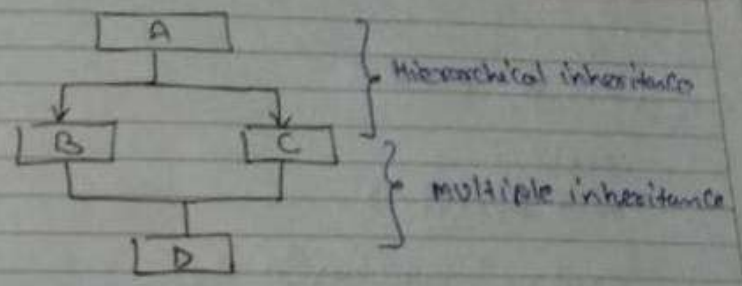 A
Hierarchical inheritance
B
C
multiple inheritance
D